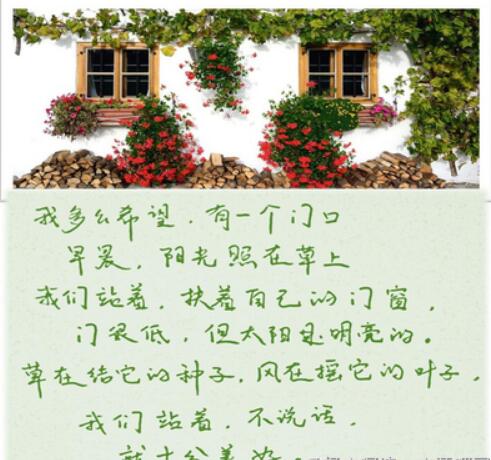 我多么希望，有一个门口
早晨，阳光照在草上
我们站着，扶着自己的门窗，
门很低，但太阳是明亮的。
草在结它的种子，风在摇它的叶子，
我们站着，不说话，
就十分美好。